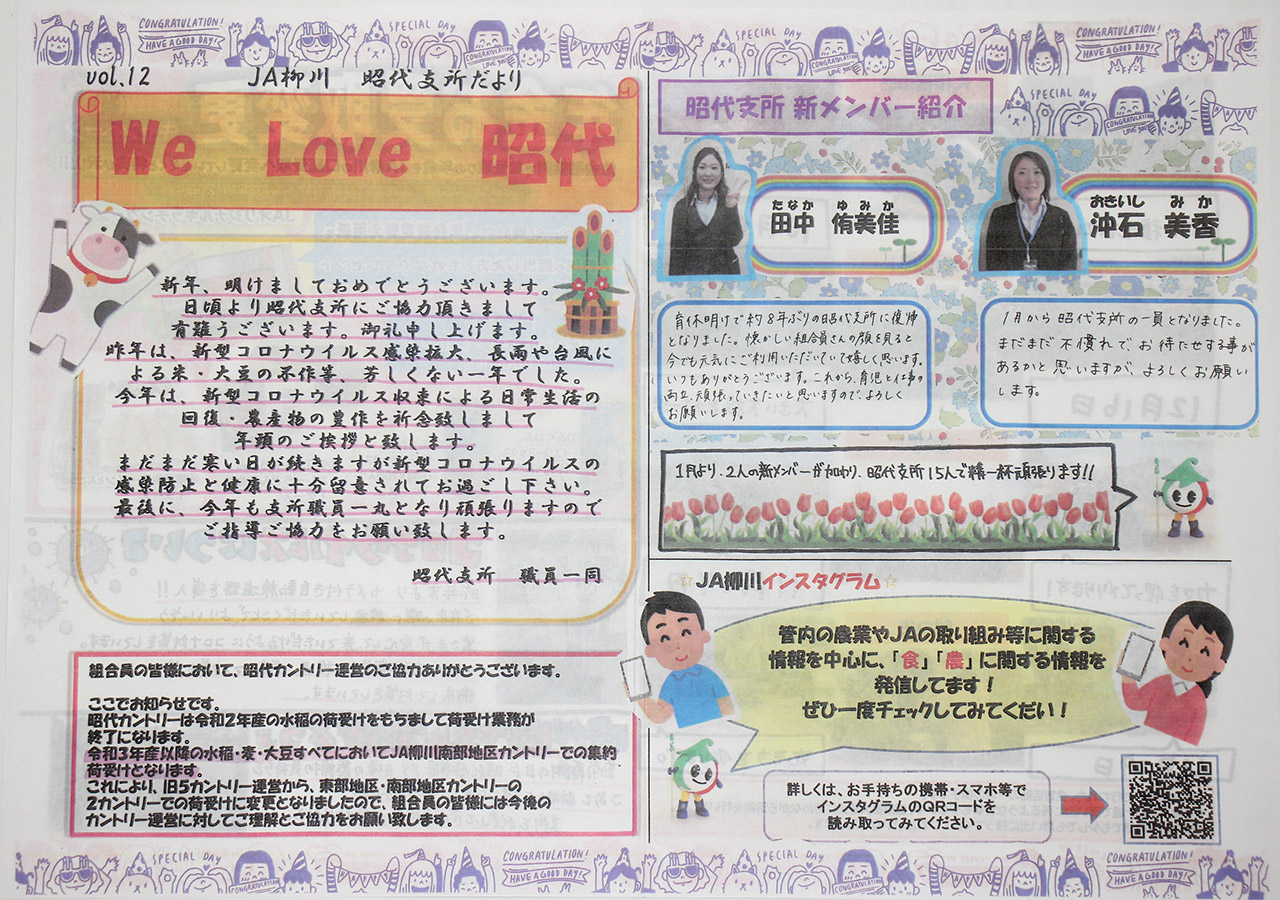 CONGRATULATION!
HAVE A GOOD DAY!
SPECIAL DAY
CONGRATULATION
LOVE YOU
PARTY
SPECIAL DAY
CONGRATULATION
LOVE YOU
PARTY
CONGRATULATION!
HAVE A GOOD DAY!
vol.12 JA柳川 昭代支所だより
We Love 昭代
新年、明けましておめでとうございます。
日頃より昭代支所にご協力頂きまして
有難うございます。御礼申し上げます。
昨年は、新型コロナウイルス感染拡大、長雨や台風に
よる米・大豆の不作等、芳しくない一年でした。
今年は、新型コロナウイルス収束による日常生活の
回復・農産物の豊作を祈念致しまして
年頭のご挨拶と致します。
まだまだ寒い日が続きますが新型コロナウイルスの
感染防止と健康に十分留意されてお過ごし下さい。
最後に、今年も支所職員一丸となり頑張りますので
ご指導ご協力をお願い致します。
昭代支所 職員一同
組合員の皆様において、昭代カントリー運営のご協力ありがとうございます。
ここでお知らせです。
昭代カントリーは令和2年産の水稲の荷受けをもちまして荷受け業務が
終了になります。
令和3年産以降の水稲・麦・大豆すべてにおいてJA柳川南部地区カントリーでの集約
荷受けとなります。
これにより、旧5カントリー運営から、東部地区・南部地区カントリーの
2カントリーでの荷受けに変更となりましたので、組合員の皆様には今後の
カントリー運営に対してご理解とご協力をお願い致します。
昭代支所 新メンバー紹介
SPECIAL DAY
CONGRATULATION
LOVE YOU
PARTY
たなか ゆみか
田中 侑美佳
おきいし みか
沖石 美香
育休明けで約8年ぶりの昭代支所に復帰
となりました。懐かしい組合員さんの顔を見ると
今でも元気にご利用いただいていて嬉しく思います。
いつもありがとうございます。これから、育児と仕事の
両立、頑張っていきたいと思いますので、よろしく
お願いします。
1月から昭代支所の一員となりました。
まだまだ不慣れで、お待たせする事が
あるかと思いますが、よろしくお願い
します。
1月より、2人の新メンバーが加わり、昭代支所15人で精一杯頑張ります!!
☆JA柳川インスタグラム☆
管内の農業やJAの取り組み等に関する
情報を中心に、「食」「農」に関する情報を
発信してます！
ぜひ一度チェックしてみてくだい！
詳しくは、お手持ちの携帯・スマホ等で
インスタグラムのQRコードを
読み取ってみてください。
SPECIAL DAY
CONGRATULATION
PARTY
CONGRATULATION!
HAVE A GOOD DAY!
SPECIAL DAY
CONGRATULATION
PARTY
CONGRATULATION!
HAVE A GOOD DAY!